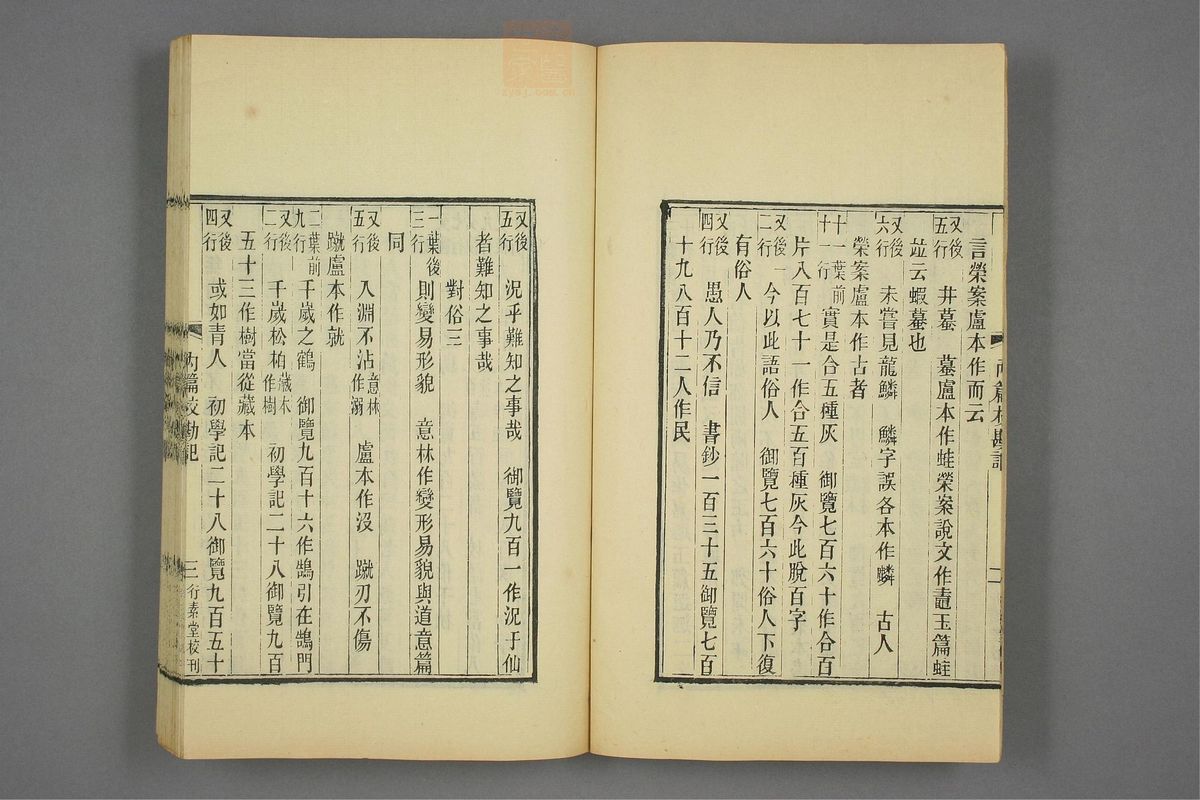 言榮案盧本作而云
又後五行 井蟇 蟇盧本作蛙榮案說文作鼃玉篇蛙
竝云蝦蟇也
又後六行 未嘗見龍鱗 鱗字誤各本作麟 古人
榮案盧本作古者
十一葉前十一行 實是合五種灰 御覽七百六十作合百
片八百七十一作合五百種灰今此脫百字
又後二行 今以此語俗人 御覽七百六十俗人下復
有俗人
又後四行 愚人乃不信 書鈔一百三十五御覽七百
十九八百十二人作民
內篇校勘記 二
又後五行 況乎難知之事哉 御覽九百一作況于仙
者難知之事哉
對俗三
一葉後三行 則變易形貌 意林作變形易貌與道意篇
同
又後五行 入淵不沾 意林作溺 盧本作沒 蹴刃不傷
蹴盧本作就
二葉前九行 千歲之鶴 御覽九百十六作鵠引在鵠門
又後二行 千歲松柏 藏本作樹 初學記二十八御覽九百
五十三作樹當從藏本
又後四行 或如青人 初學記二十八御覽九百五十
內篇校勘記 三 行素堂校刊
zysj.com.cn